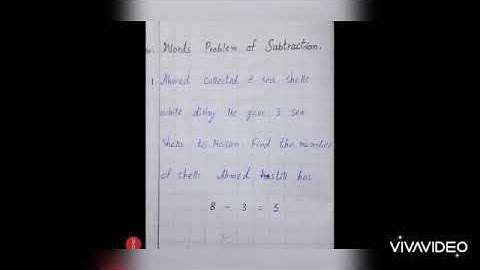 Words Problem of Subtraction.
1. Ahmed collected 8 sea shells
while diving He gave 3 sea
shells to Hasan. Find the number
of shells Ahmed still has
8 - 3 = 5
VIVAVIDEO